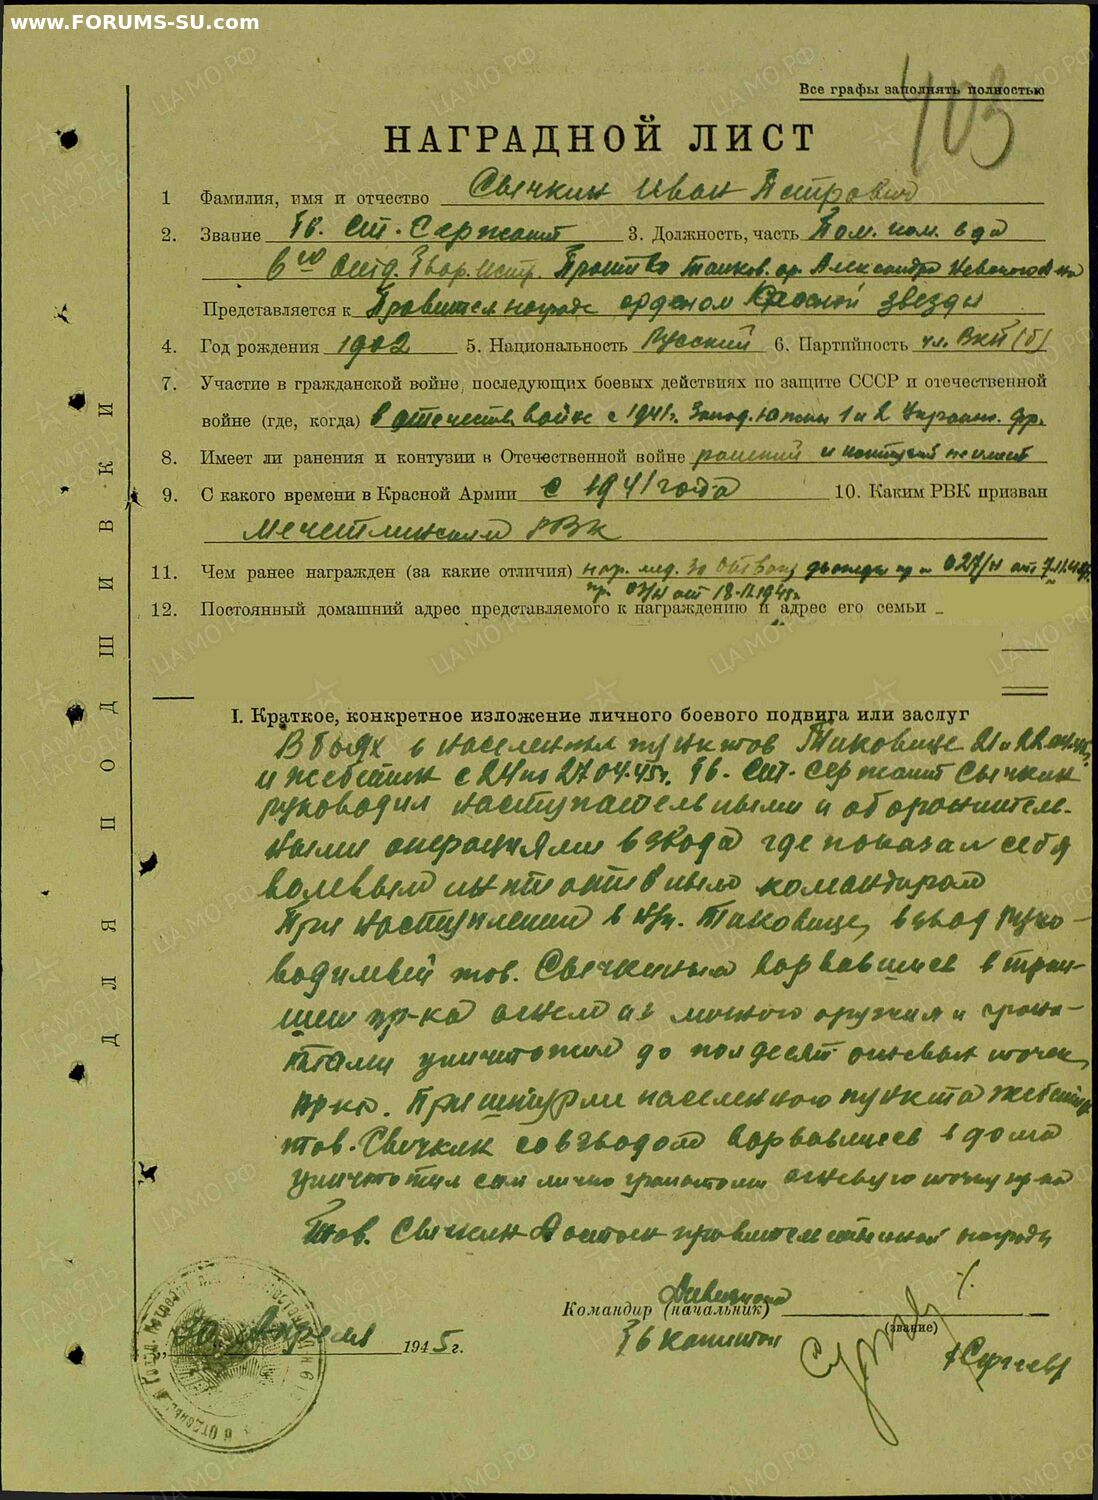 www.FORUMS-SU.com
403
Все графы заполнять полностью
НАГРАДНОЙ ЛИСТ
1 Фамилия, имя и отчество Свичкин Иван Петрович
2. Звание Гв. Ст. Сержант 3. Должность, часть Пом. ком. в-да
6го Отд. Гвар. Истр. Против. танков. ор. Александра Невского
Представляется к Правител. награде орденом Красной звезды
4. Год рождения 1902 5. Национальность Русский 6. Партийность чл. ВКП(б)
7. Участие в гражданской войне, последующих боевых действиях по защите СССР и отечественной
войне (где, когда) в отечеств. войне с 1941г. Запад. Южн 1 и 2 Украин. фр.
8. Имеет ли ранения и контузии в Отечественной войне ранений и контузий не имеет
9. С какого времени в Красной Армии с 1941 года 10. Каким РВК призван
Мечетлинским РВК
11. Чем ранее награжден (за какие отличия) нар. мед. За Отвагу дважды пр н 027/н от
пр. 03/н от 18.II.1945г.
12. Постоянный домашний адрес представляемого к награждению и адрес его семьи
I. Краткое, конкретное изложение личного боевого подвига или заслуг
В боях в населенных пунктов Тиковице 21 и 22
и Жебетин с 24 по 27.04.45г. Гв. Ст. сержант Свичкин
руководил наступательными и оборонитель-
ными операциями взвода где показал себя
волевым командиром
При наступлении в н/п. Тиковице, взвод руко-
водимый тов. Свичкиным ворвавшись в тран-
шеи пр-ка огнем из личного оружия и грана-
тами уничтожил до полдесят огневых точек
пр-ка. При штурме населенного пункта Жебетин
тов. Свичкин со взводом ворвавшись в дома
уничтожил сам лично гранатами огневую точку пр-ка
Тов. Свичкин достоин правительственной награды
Командир (начальник) Дивизиона
(звание)
Гв капитан
Сергеев
30 Апреля 1945 г.
ДЛЯ ПОДШИВКИ
ЦА МО РФ